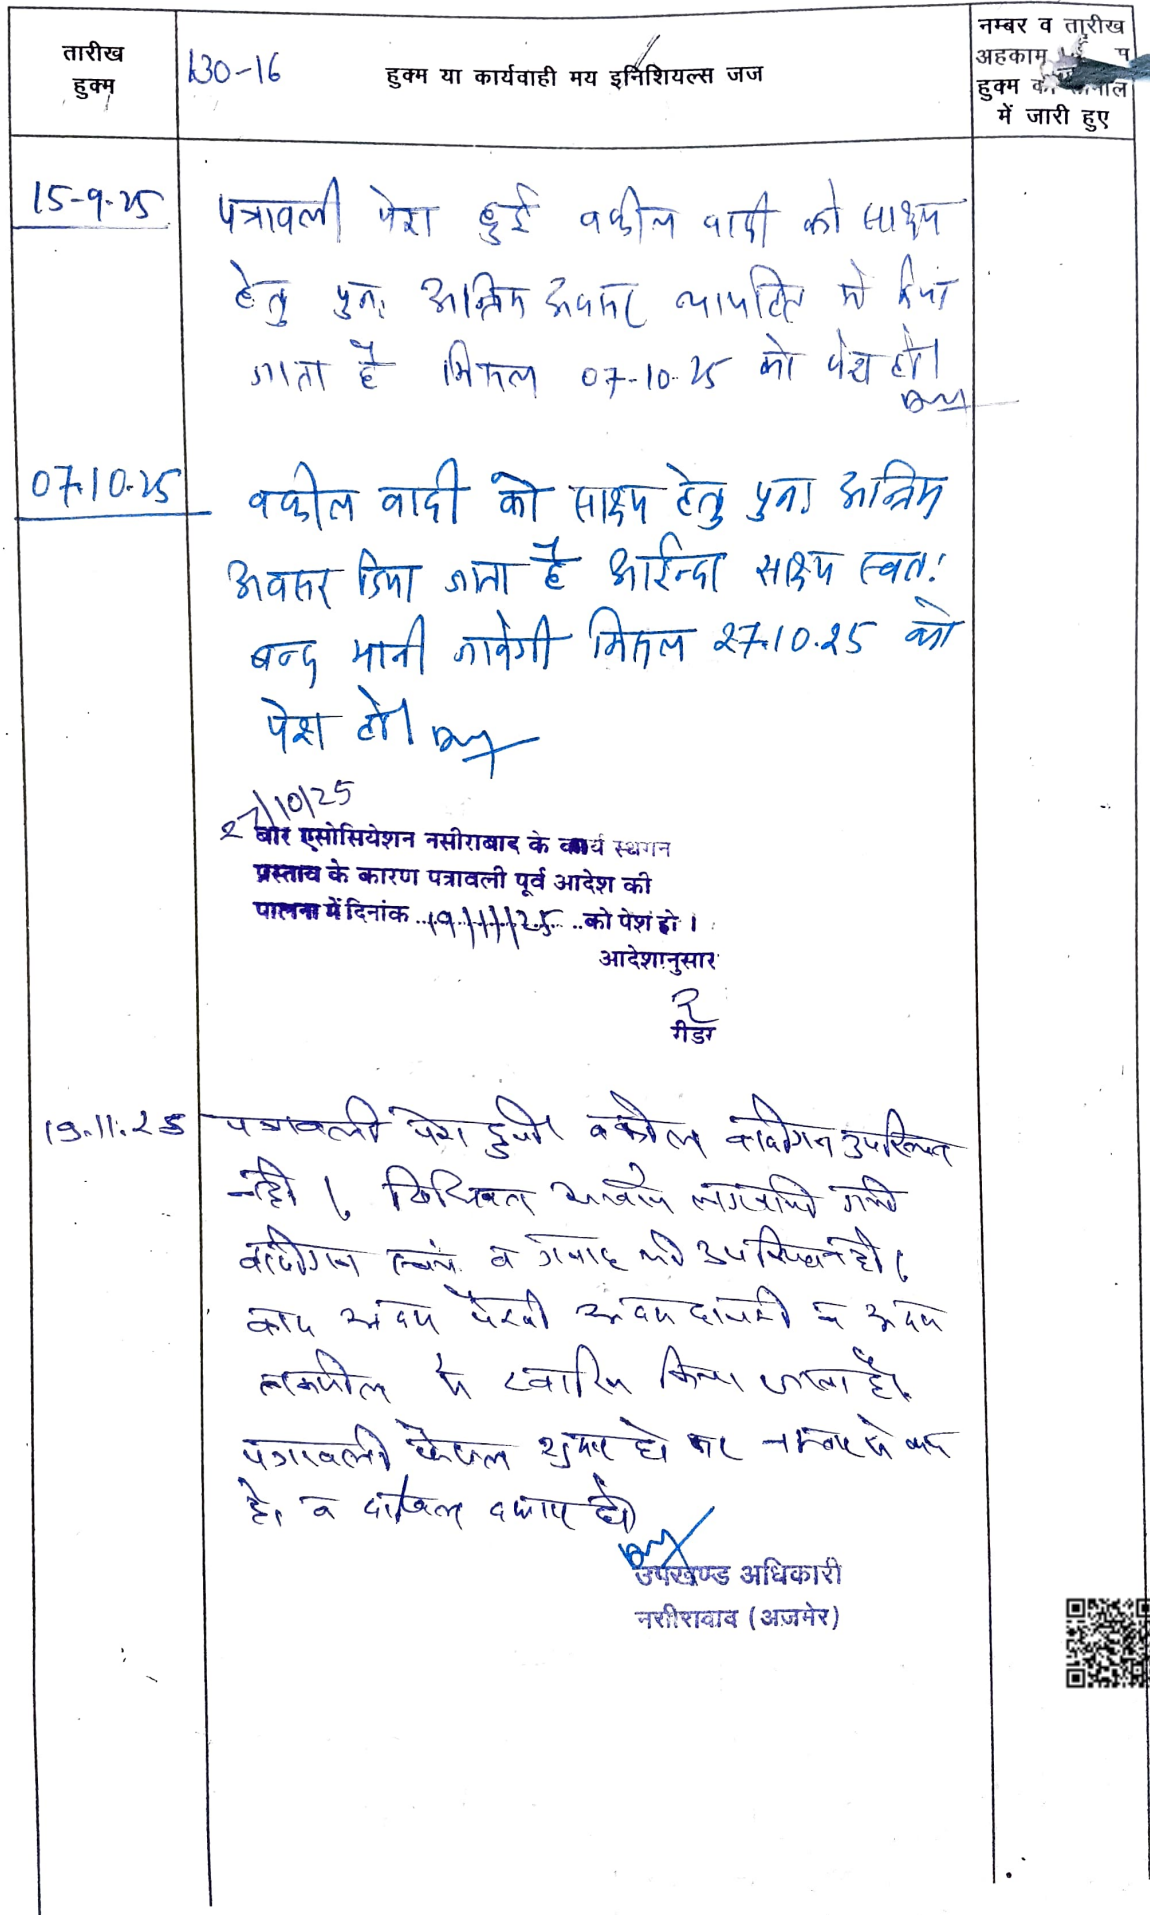 तारीख
हुक्म
130-16
हुक्म या कार्यवाही मय इनिशियल्स जज
नम्बर व तारीख
अहकाम
हुक्म की
में जारी हुए
15-9-25
पत्रावली पेश हुई वकील वादी को साक्ष्य
हेतु पुनः अन्तिम अवसर न्यायहित में दिया
जाता है मिसल 07-10-25 को पेश हो।
07.10.25
वकील वादी को साक्ष्य हेतु पुनः अन्तिम
अवसर दिया जाता है आईन्दा साक्ष्य स्वतः
बन्द मानी जावेगी मिसल 27.10.25 को
पेश हो।
27/10/25
बार एसोसियेशन नसीराबाद के कार्य स्थगन
प्रस्ताव के कारण पत्रावली पूर्व आदेश की
पालना में दिनांक 19/11/25 को पेश हो ।
आदेशानुसार
रीडर
19.11.25
पत्रावली पेश हुयी। वकील वादीगन उपस्थित
नही ।
वादीगन स्वयं व गवाह भी उपस्थित नही।
वाद अदम पैरवी अदम हाजरी व अदम
के खारिज किया जाता है।
पत्रावली फैसल शुमार हो कर नम्बर से कम
हो व दाखिल दफ्तर हो।
उपखण्ड अधिकारी
नसीराबाद (अजमेर)